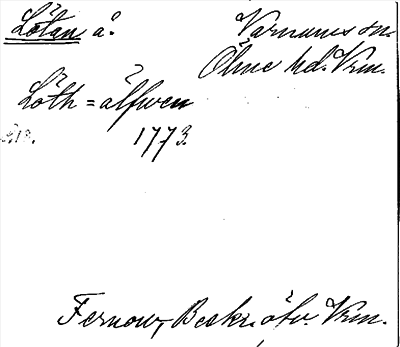 Lötan å.
Varnums sn.
Ölme hd. Vrm.
Löth=älfwen
1773.
Fernow, Beskr. öfv. Vrm.